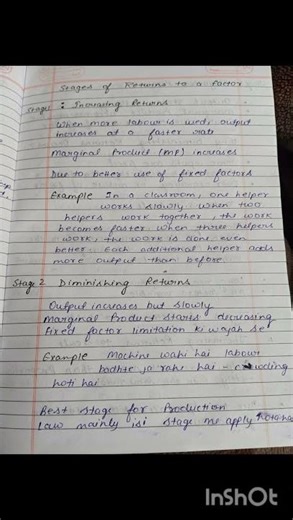 Stages of Returns to a Factor
Stage : Increasing Returns
When more labour is used, output
increases at a faster rate
Marginal Product (MP) increases
Due to better use of fixed factors
Example In a classroom, one helper
works slowly when two
helpers work together, the work
becomes faster when three helpers
work, the work is done even
better. Each additional helper adds
more output than before.
Stage 2 Diminishing Returns
Output increases but slowly
Marginal Product starts decreasing
Fixed factor limitation ki wajah se
Example Machine wahi hai labour
badhte ja rahe hai - crowding
hoti hai
Best stage for Production
Law mainly isi stage me apply hota hai
InShOt